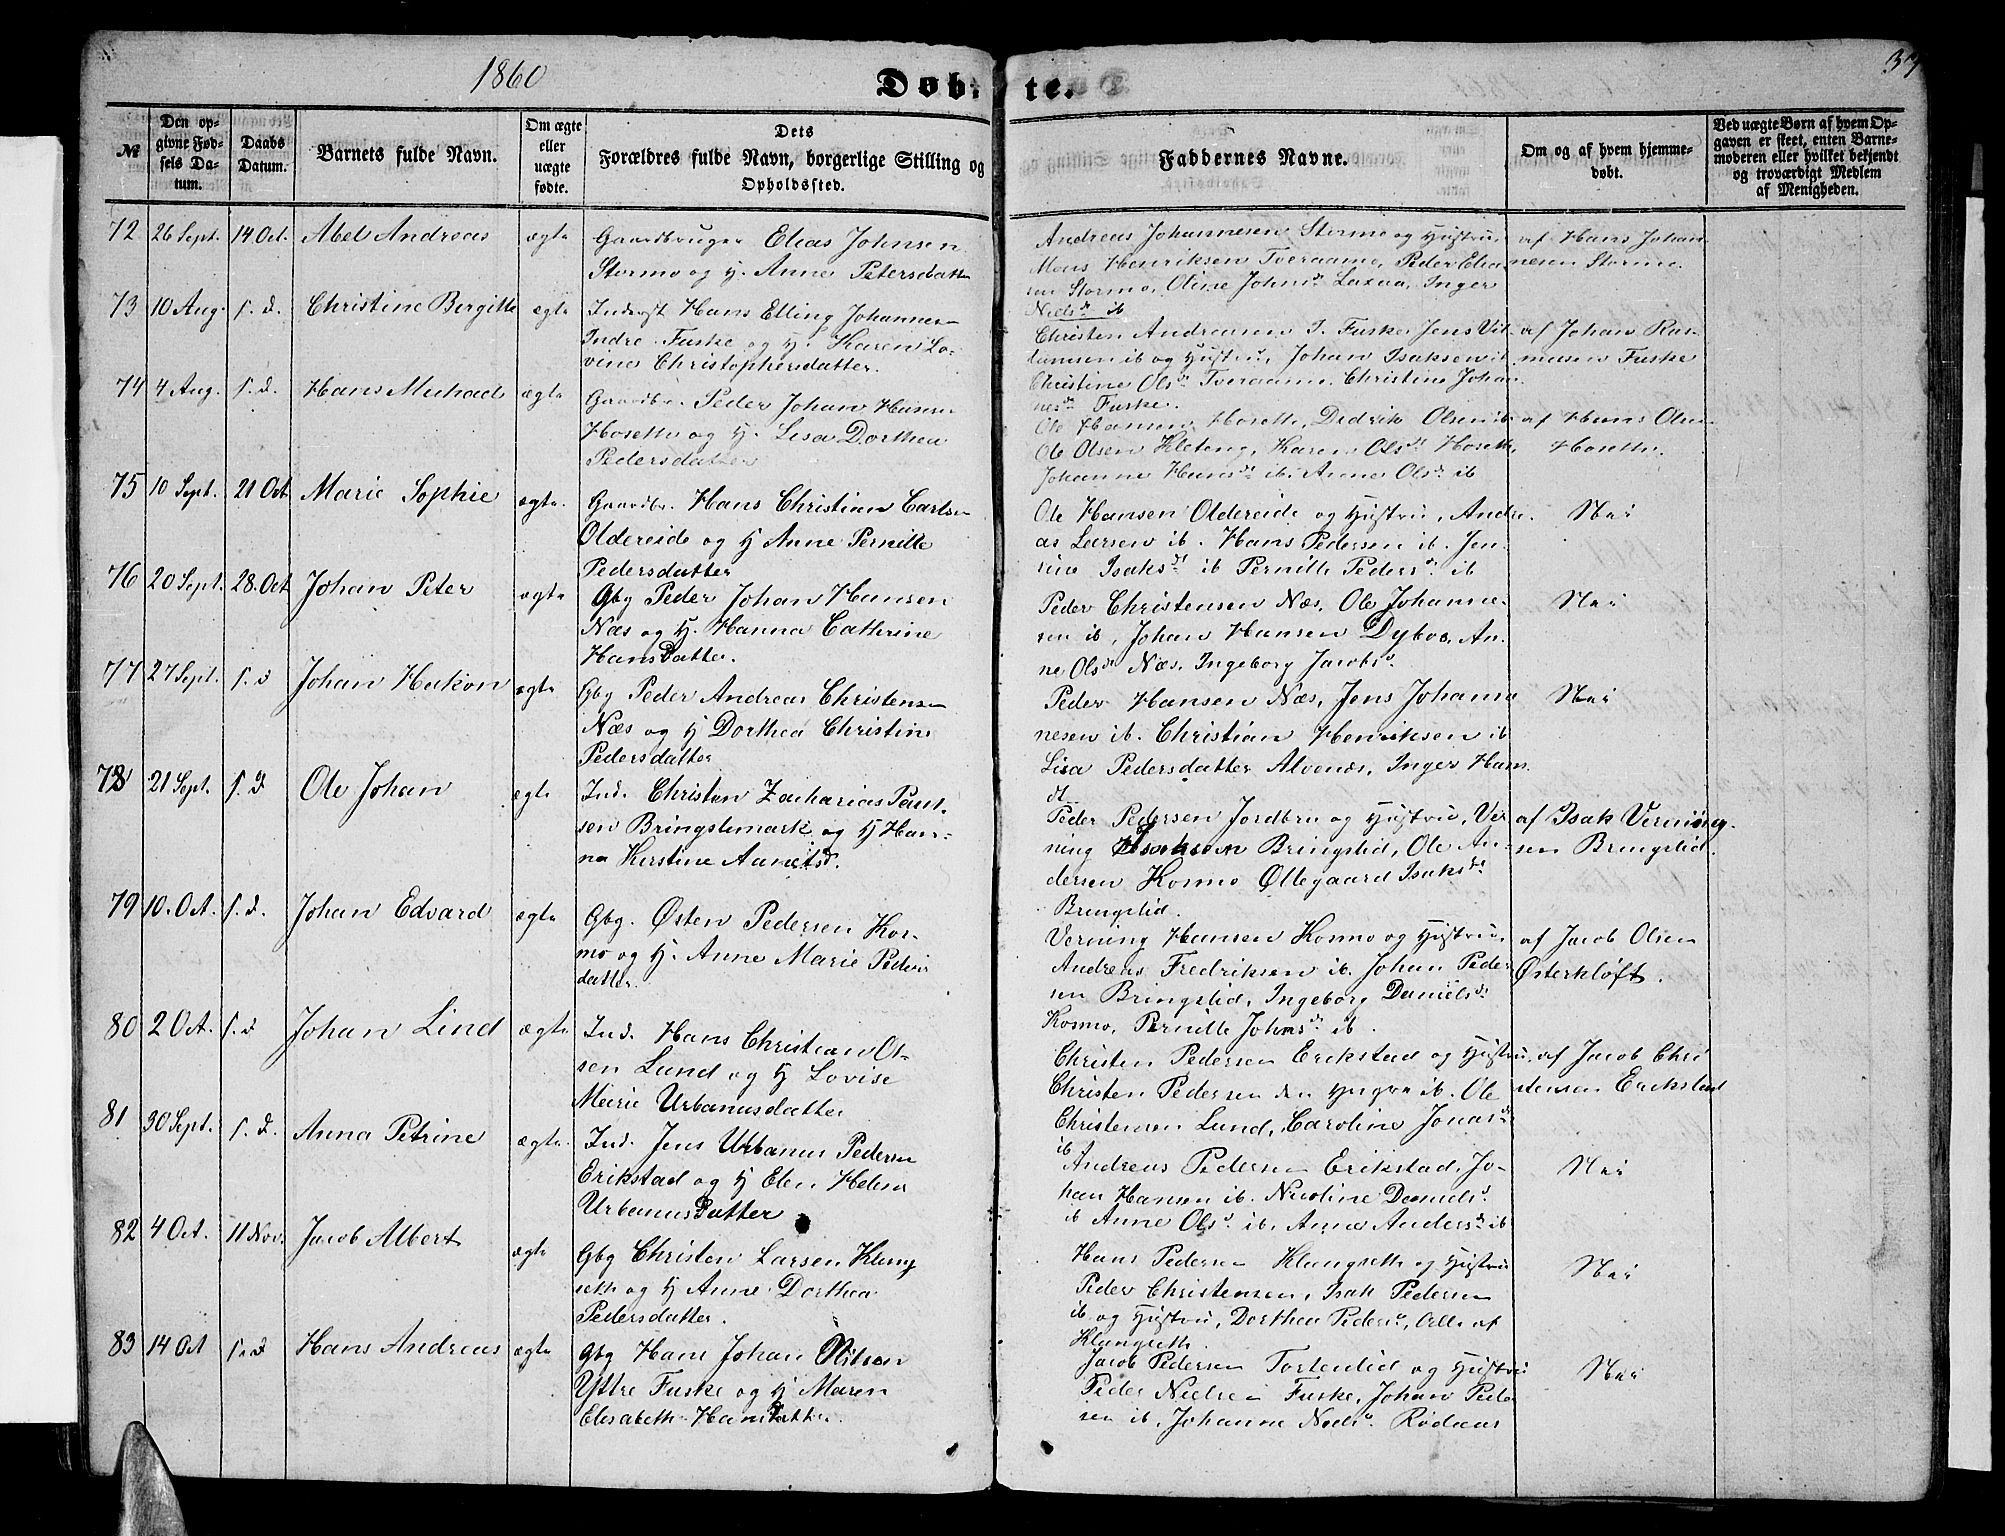 1860
Døbte.
33
№
Den opgivne Fødsels Datum.
Daabs Datum.
Barnets fulde Navn.
Om ægte eller uægte fødte.
Dets Forældres fulde Navn, borgerlige Stilling og Opholdssted.
Faddernes Navne.
Om og af hvem hjemmedøbt.
Ved uægte Børn af hvem Opgaven er skeet, enten Barnemoderen eller hvilket bekjendt og troværdigt Medlem af Menigheden.
72 26 Sept. 14 Oct. Abel Andreas ægte
Gaardbruger Elias Johnsen
Stormo og H. Anne Petersdatter
Andreas Johannesen Stormo og Hustru
Mons Henriksen Tveraamo, Peder Elia
sen Stormo, Oline Johnsd. Laxaa, Inger
Nielsd. ib
af Hans Johan
nesen Stormo.
73 10 Aug. s. d. Christine Bergitte ægte
Inderst Hans Elling Johannes
Indre Fuske og H. Karen Lo-
vina Christophersdatter.
Christen Andreasen I. Fuske, Jens Vil-
lumsen ib og Hustru, Johan Isaksen ib
Christine Olsdr Tveraamo. Christine Johan
nesdr Fuske.
af Johan Ras
musen Fuske
74 4 Aug. s. d. Hans Michael ægte
Gaardbr. Peder Johan Hansen
Hosette og H. Lisa Dorthea
Pedersdatter
Ole Hansen Hosette, Didrik Olsen ib
Ole Olsen Kleteng, Karen Olsdr Hosette,
Johanne Hansdr ib. Anne Olsdr ib
af Hans Olsen
Hosette.
75 10 Sept. 21 Oct Marie Sophie ægte.
Gaardbr. Hans Christian Carlsen
Oldereide og H Anne Pernille
Pedersdatter
Ole Hansen Oldereide og Hustru, Andre
as Larsen ib. Hans Pedersen ib. Jen-
sine Isaksdr ib Pernille Pedersdr ib
Nei
76 20 Sept. 28. Oct Johan Peter ægte
Gbg Peder Johan Hansen
Næs og H. Hanna Cathrine
Hansdatter.
Peder Christensen Næs, Ole Johanne-
sen ib, Johan Hansen Dybvo, An-
ne Olsdr Næs, Ingeborg Jacobsdr.
Nei
77 27 Sept. s. d Johan Hakon ægte
Gbg Peder Andreas Christensen
Næs og H Dorthea Christine
Pedersdatter
Peder Hansen Næs, Jens Johan
nesen ib. Christian Henriksen ib
Lisa Pedersdatter Alvenæs, Inger Hans
dt
Nei
78 21 Sept. s. d Ole Johan ægte
Ind. Christen Zacharias Paul-
sen Bringslemark og H Han-
na Kirstine Aanetsdr.
Peder Pedersen Jordbru og Hustru, Ver
ning Isaksen Bringslid, Ole An-
dersen Kosmo Øllegaard Isaksdr
Bringslid.
af Isak Verning-
sen Bringslid.
79 10. Oct. s. d. Johan Edvard ægte
Gbg. Østen Pedersen Kos-
mo og H. Anne Marie Peders
datter.
Verning Hansen Kosmo og Hustru,
Andreas Fredriksen ib. Johan Peder
sen Bringslid, Ingeborg Danielsdr
Kosmo, Pernille Johnsdr ib.
af Jacob Olsen
Østerkløft.
80 2 Oct. s. d Johan Lind ægte
Ind. Hans Christian Ol-
sen Lund og H Lovise
Marie Urbanusdatter
Christen Pedersen Erikstad og Hustru,
Christen Pedersen den Yngre ib. Ole
Christensen Lund, Caroline Jonasdr
ib
af Jacob Chri
stensen Erikstad
81 30 Sept. s. d. Anna Petrine ægte.
Ind. Jens Urbanus Pedersen
Erikstad og H Elen Helene
Urbanusdatter
Andreas Pedersen Erikstad, Jo-
han Hansen ib. Nicoline Danielsdr
ib Anne Olsdr ib. Anne Andersdr ib
Nei
82 4 Oct. 11 Nov. Jacob Albert ægte
Gbg Christen Larsen Klung
seth og H Anne Dorthea
Pedersdatter.
Hans Pedersen Klungseth og Hustru
Peder Christensen, Isak Pedersen
ib og Hustru, Dorthea Pedersdr, Alle af
Klungseth.
Nei
83 14 Oct s. d Hans Andreas ægte
Gbg Hans Johan Nilsen
Yttre Fuske og H Maren
Elisabeth Hansdatter.
Jacob Pedersen Torstenlid og Hustru
Peder Nielsen Fuske, Johan Peder
sen ib, Johanne Nielsdr Rødaas
Nei